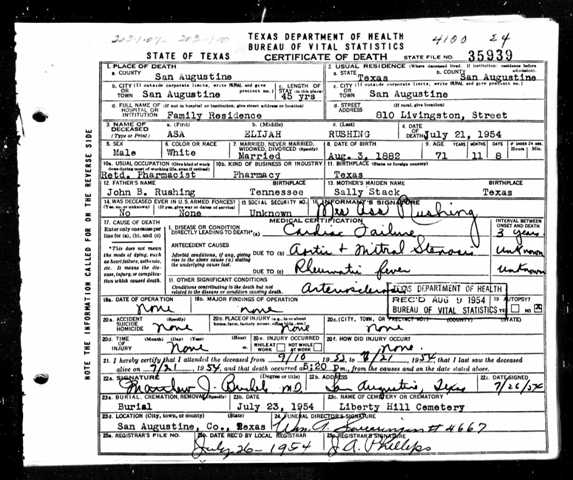 TEXAS DEPARTMENT OF HEALTH
BUREAU OF VITAL STATISTICS
4100 24
STATE OF TEXAS CERTIFICATE OF DEATH STATE FILE NO. 35939
1. PLACE OF DEATH
a. COUNTY San Augustine
2. USUAL RESIDENCE (Where deceased lived. If institution: residence before admission)
a. STATE Texas b. COUNTY San Augustine
b. CITY (If outside corporate limits, write RURAL and give precinct no.) OR TOWN San Augustine
c. LENGTH OF STAY (in this place) 45 yrs
c. CITY (If outside corporate limits, write RURAL and give precinct no.) OR TOWN San Augustine
d. FULL NAME OF HOSPITAL OR INSTITUTION (If not in hospital or institution, give street address or location) Family Residence
d. STREET ADDRESS (If rural, give location) 810 Livingston, Street
3. NAME OF DECEASED (Type or Print)
a. (First) ASA b. (Middle) ELIJAH c. (Last) RUSHING
4. DATE OF DEATH July 21, 1954
5. SEX Male
6. COLOR OR RACE White
7. MARRIED, NEVER MARRIED, WIDOWED, DIVORCED (Specify) Married
8. DATE OF BIRTH Aug. 3, 1882
9. AGE YEARS 71 MONTHS 11 DAYS 8 Hours Min.
10a. USUAL OCCUPATION (Give kind of work done during most of working life, even if retired) Retd. Pharmacist
10b. KIND OF BUSINESS OR INDUSTRY Pharmacy
11. BIRTHPLACE (State or foreign country) Texas
12. FATHER'S NAME John B. Rushing BIRTHPLACE Tennessee
13. MOTHER'S MAIDEN NAME Sally Stack BIRTHPLACE Texas
14. WAS DECEASED EVER IN U.S. ARMED FORCES? (Yes, no, or unknown) No (If yes, give war or dates of service) None
15. SOCIAL SECURITY NO. Unknown
16. INFORMANT'S SIGNATURE Mrs Asa Rushing
17. CAUSE OF DEATH
Enter only one cause per line for (a), (b), and (c)
MEDICAL CERTIFICATION
INTERVAL BETWEEN ONSET AND DEATH
I. DISEASE OR CONDITION DIRECTLY LEADING TO DEATH* (a) Cardiac Failure 3 years
*This does not mean the mode of dying, such as heart failure, asthenia, etc. It means the disease, injury, or complication which caused death.
ANTECEDENT CAUSES
Morbid conditions, if any, giving rise to the above cause (a) stating the underlying cause last.
DUE TO (b) Aortic & Mitral Stenosis unknown
DUE TO (c) Rheumatic fever unknown
II. OTHER SIGNIFICANT CONDITIONS
Conditions contributing to the death but not related to the disease or condition causing death.
TEXAS DEPARTMENT OF HEALTH
REC'D AUG 9 1954
BUREAU OF VITAL STATISTICS
18a. DATE OF OPERATION none
18b. MAJOR FINDINGS OF OPERATION none
19. AUTOPSY? YES NO
20a. ACCIDENT SUICIDE HOMICIDE (Specify) none
20b. PLACE OF INJURY (e.g., in or about home, farm, factory, street, office bldg., etc.) none
20c. none
20d. TIME OF INJURY (Month) (Day) (Year) (Hour) none
20e. INJURY OCCURRED WHILE AT WORK NOT WHILE AT WORK
20f. HOW DID INJURY OCCUR? none
21. I hereby certify that I attended the deceased from 9/10 1953 to 7/21 1954, that I last saw the deceased
alive on 7/21 1954, and that death occurred at 5:20 pm, from the causes and on the date stated above.
22a. SIGNATURE (Degree or title) Matthew J. M.D.
22b. ADDRESS San Augustine, Texas
22c. DATE SIGNED 7/26/54
23a. BURIAL, CREMATION, REMOVAL (Specify) Burial
23b. DATE July 23, 1954
23c. NAME OF CEMETERY OR CREMATORY Liberty Hill Cemetery
23d. LOCATION (City, town, or county) (State) San Augustine, Co., Texas
24. FUNERAL DIRECTOR'S SIGNATURE Wm A. #4667
25a. REGISTRAR'S FILE NO.
25b. DATE REC'D BY LOCAL REGISTRAR July-26-1954
25c. REGISTRAR'S SIGNATURE J.A. Phillips
NOTE THE INFORMATION CALLED FOR ON THE REVERSE SIDE